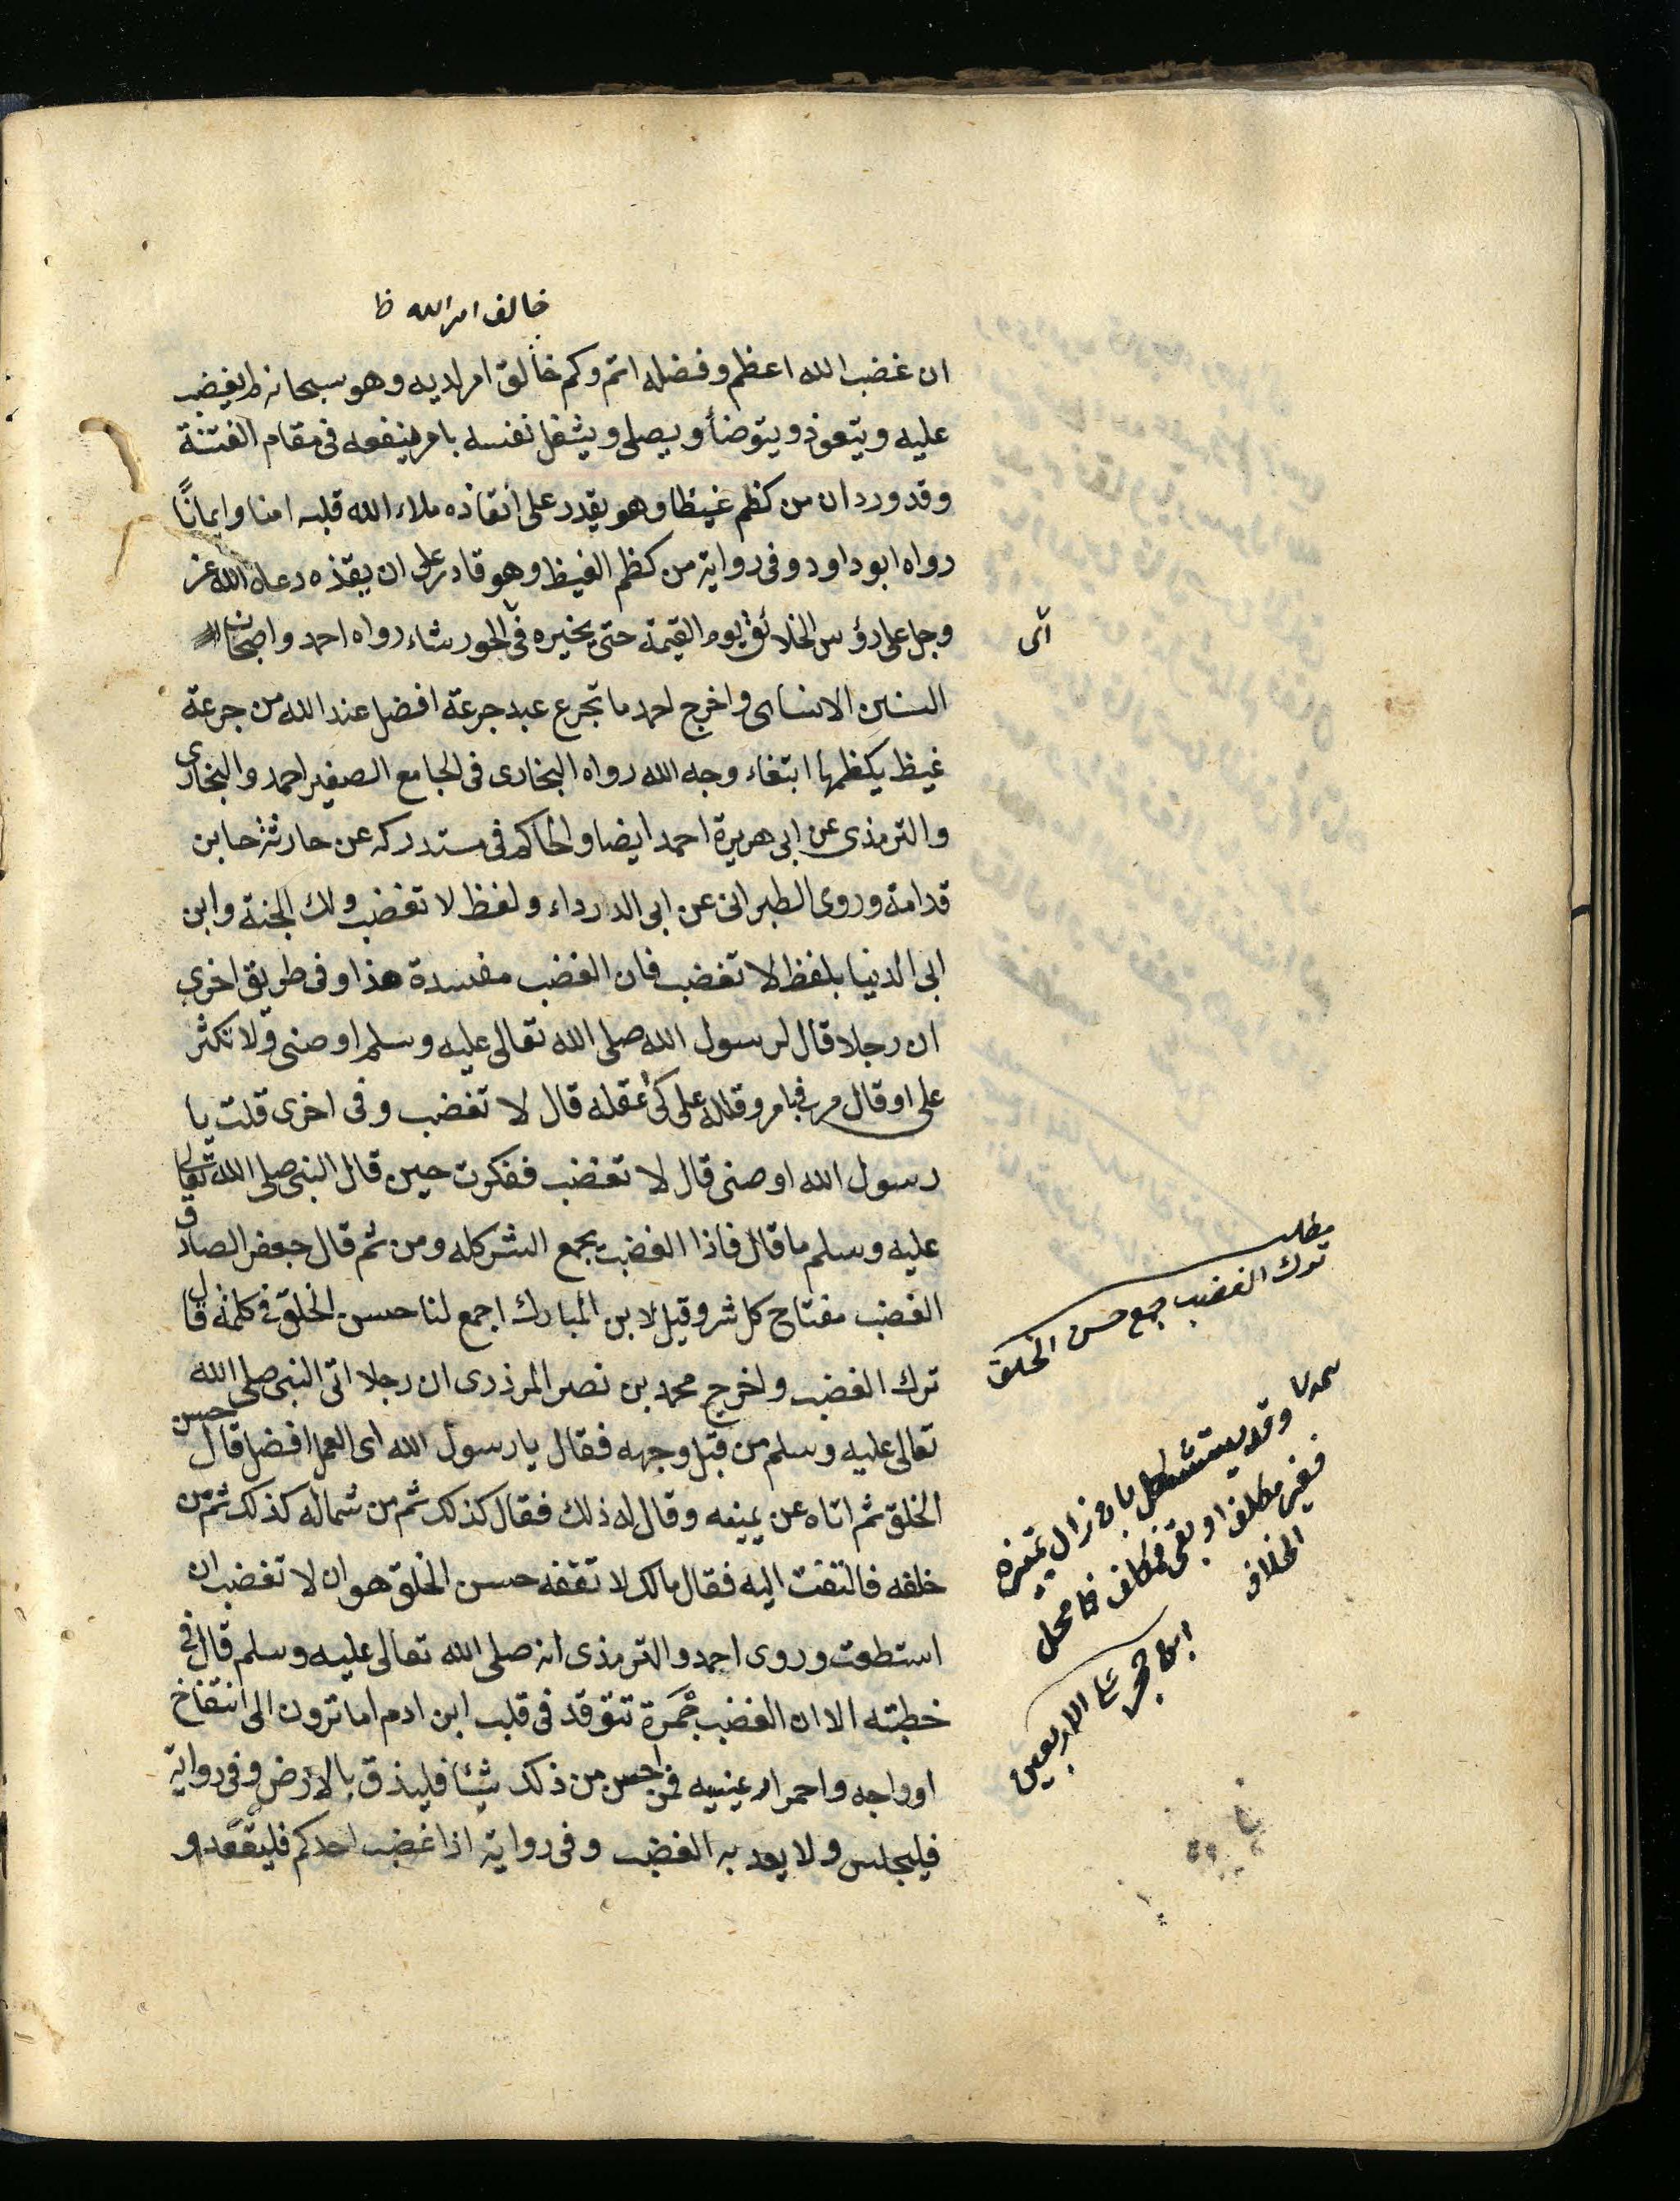 خالف امر الله ظ
ان غضب الله اعظم وفضله اتم وكم خالق امر اديه وهو سبحانه لم يغضب
عليه ويتعوذ ويتوضأ ويصلى ويشغل نفسه بامر ينفعه فى مقام الفتنة
وقد ورد ان من كظم غيظا وهو يقدر على انفاذه ملاء الله قلبه امنا وايمانًا
رواه ابو داود وفى رواية من كظم الغيظ وهو قادر على ان يقذه دعاه الله عز
وجل على رؤس الخلائق يوم القيمة حتى يخيره فى اى الحور شاء رواه احمد واصحاب
السنن الا النسائى واخرج احمد ما تجرع عبد جرعة افضل عند الله من جرعة
غيظ يكظمها ابتغاء وجه الله رواه البخارى فى الجامع الصغير احمد والبخارى
والترمذى عن ابى هريرة احمد ايضا والحاكم فى مستدركه عن حارثة حابن
قدامة وروى الطبرانى عن ابى الدارداء ولفظ لا تغضب ولك الجنة وابن
ابى الدنيا بلفظ لا تغضب فان الغضب مفسدة هذا وفى طريق اخرى
ان رجلا قال لرسول الله صلى الله تعالى عليه وسلم اوصنى ولا تكثر
على او قال مرنى بامر وقلله على كى اعقله قال لا تغضب وفى اخرى قلت يا
رسول الله اوصنى قال لا تغضب ففكرت حين قال النبى صلى الله تعالى
عليه وسلم ما قال فاذا الغضب يجمع الشر كله ومن ثم قال جعفر الصادق
الغضب مفتاح كل شر وقيل لابن المبارك اجمع لنا حسن الخلق فى كلمة قال
ترك الغضب واخرج محمد بن نصر المرذرى ان رجلا اتى النبى صلى الله
تعالى عليه وسلم من قبل وجهه فقال يا رسول الله اى العمل افضل قال حسن
الخلق ثم اتاه عن يمينه وقال له ذلك فقال كذلك ثم من شماله كذلك ثم من
خلفه فالتفت اليه فقال مالك لا تفقه حسن الخلق هو ان لا تغضب ان
استطعت وروى احمد والترمذى انه صلى الله تعالى عليه وسلم قال فى
خطبته الا ان الغضب جَمَرة تتوقد فى قلب ابن ادم اما ترون الى انتفاخ
اوواجه واحمرار عينيه فمن احس من ذلك شيئا فليذق بالارض وفى رواية
فليجلس ولا يعد به الغضب وفى رواية اذا غضب احدكم فليقعد و
اى
مطلب
ترك الغضب جمع حسن الخلق
وقد يستشكل بان زال تمييزه
فغير مكلف او بقى فمكلف فما محل
الخلاف
ابن حجر على الاربعين